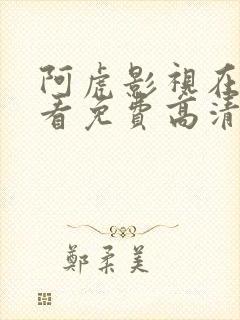 阿虎影視在
看免費高清
鄭柔美